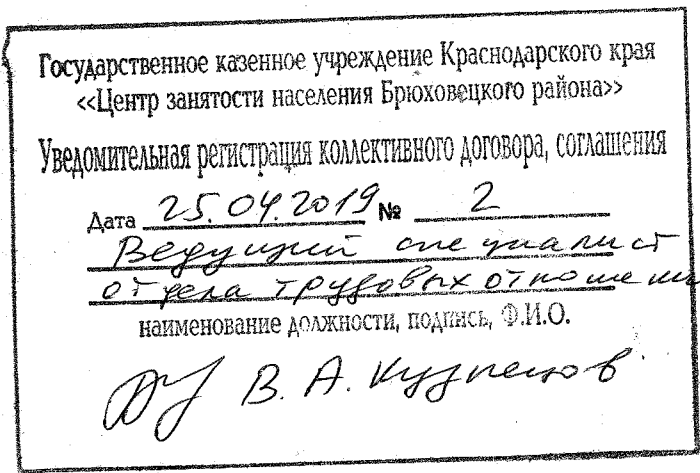 Государственное казенное учреждение Краснодарского края
«Центр занятости населения Брюховецкого района»
Уведомительная регистрация коллективного договора, соглашения
Дата 25.04.2019 № 2
Ведущий специалист
отдела трудовых отношени
наименование должности, подпись, Ф.И.О.
В. А. Кузнецов